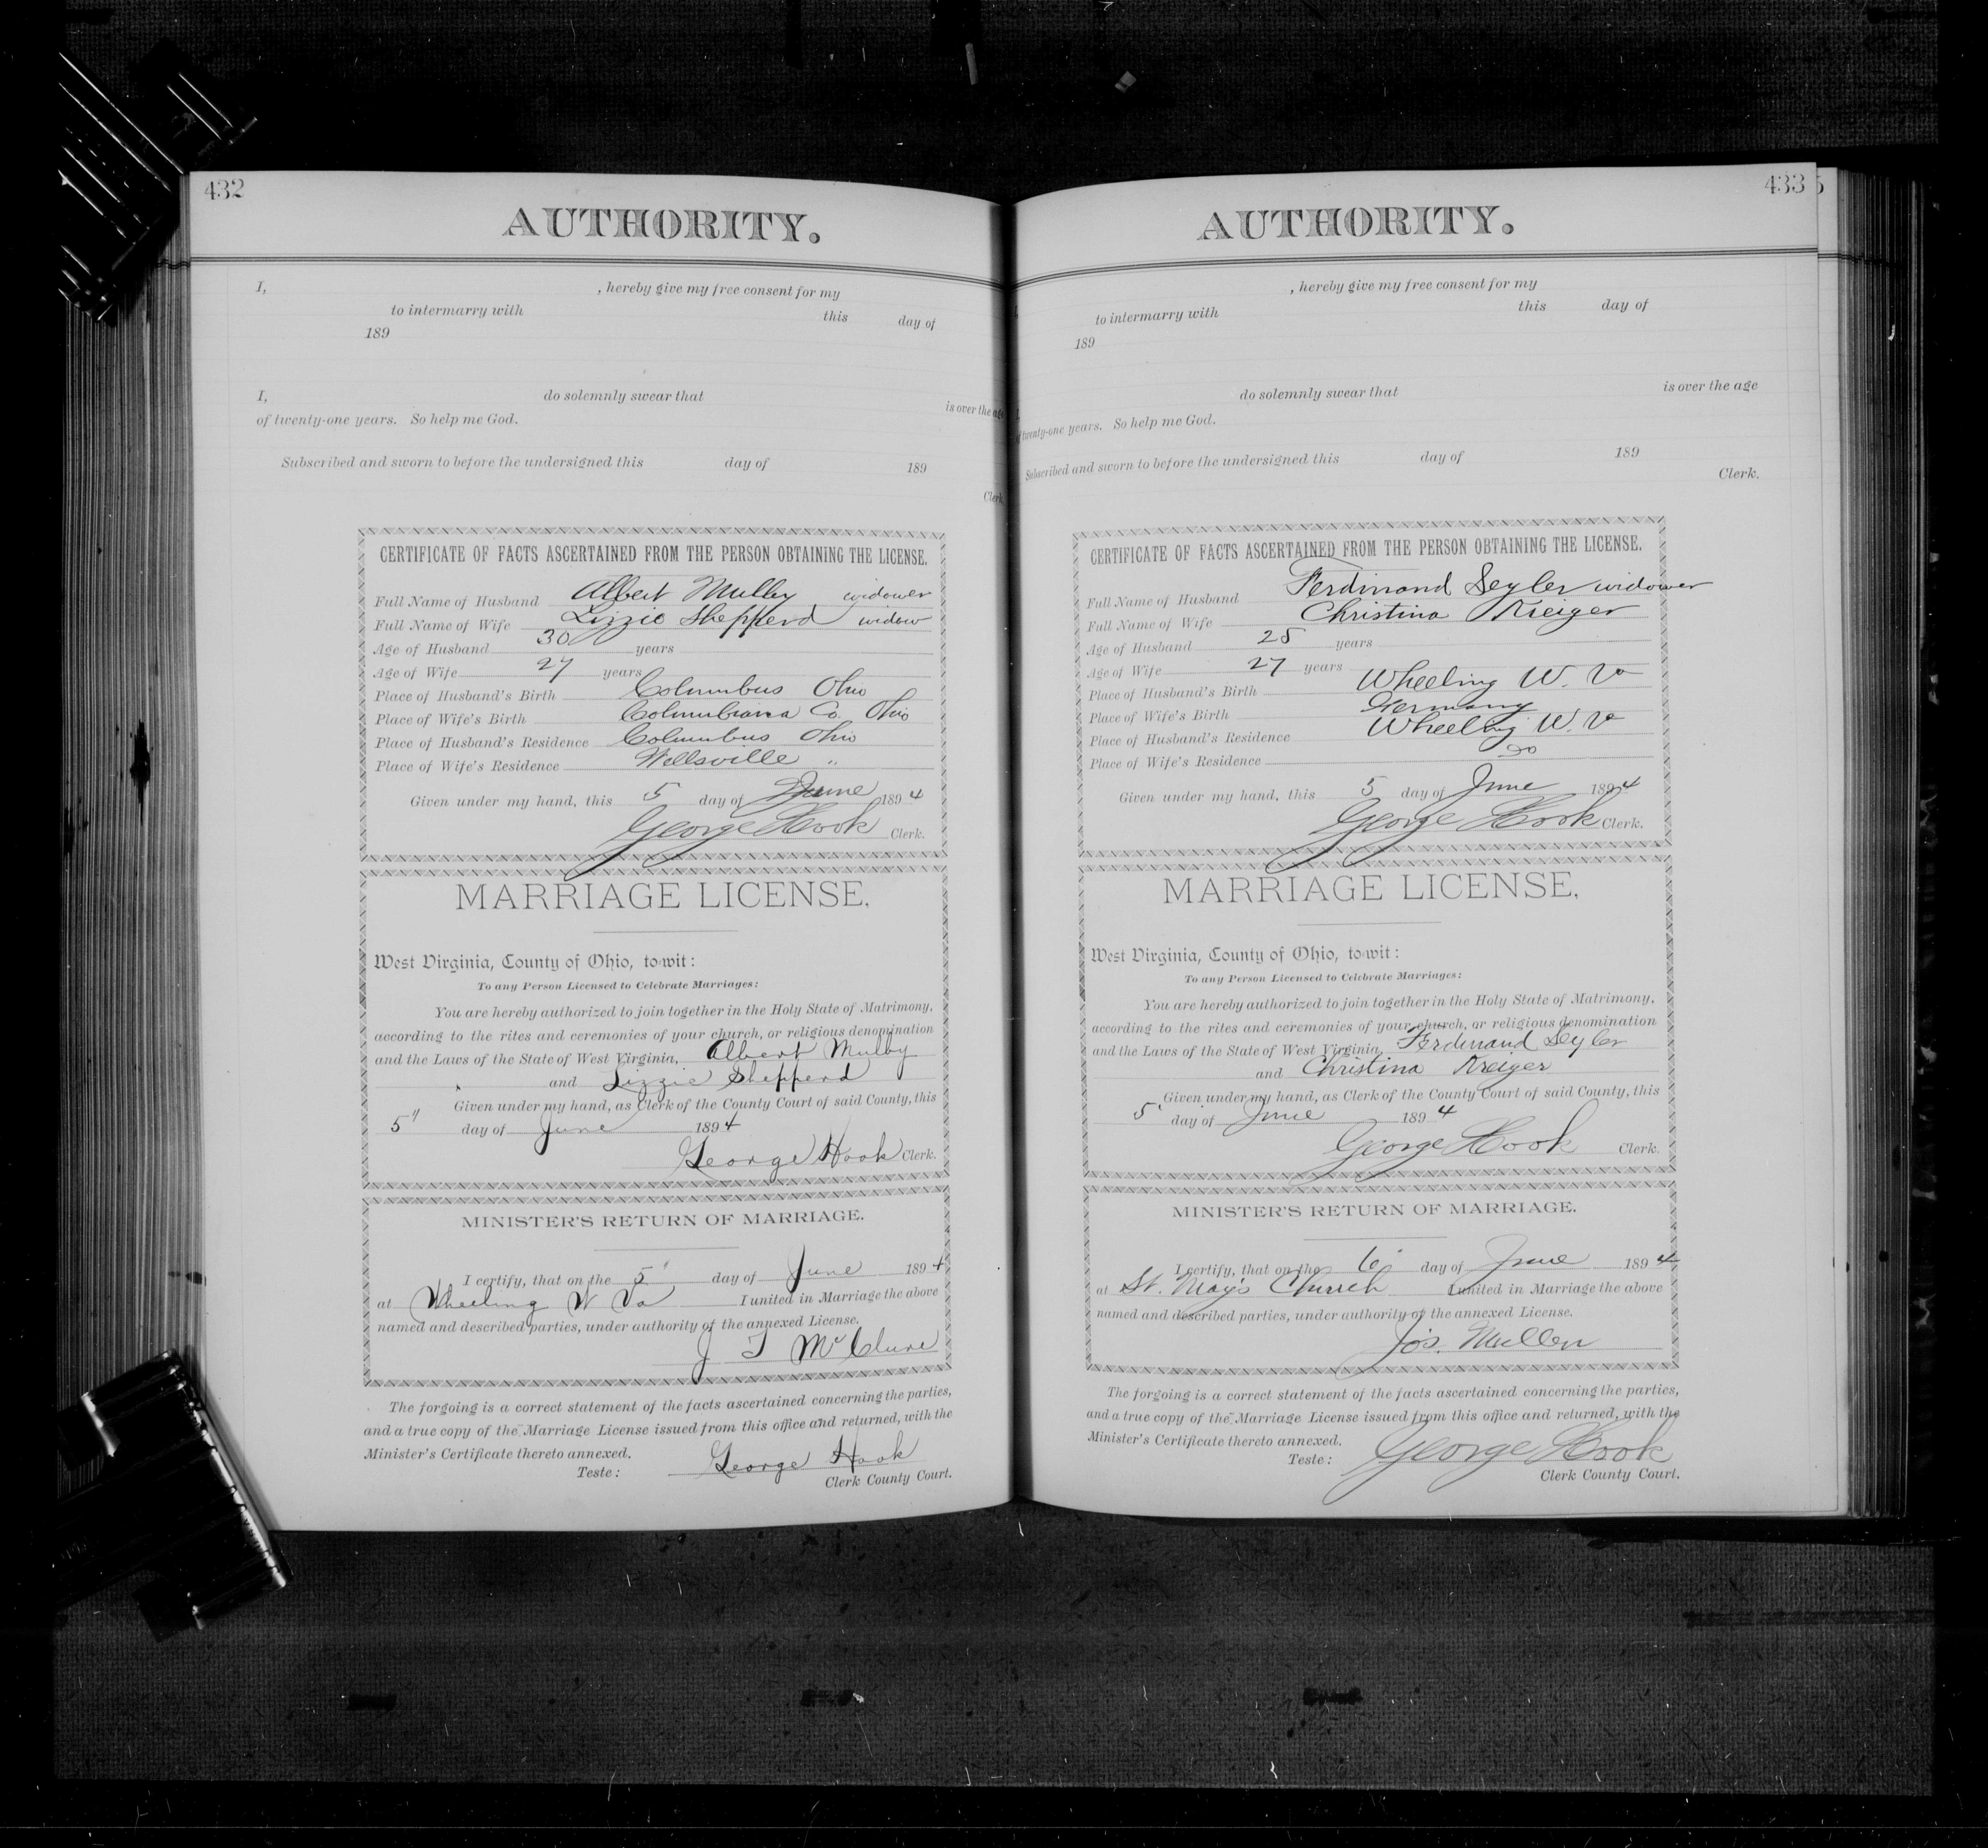 432
AUTHORITY.
I, , hereby give my free consent for my
to intermarry with this day of
189
I, do solemnly swear that is over the age
of twenty-one years. So help me God.
Subscribed and sworn to before the undersigned this day of 189
Clerk
CERTIFICATE OF FACTS ASCERTAINED FROM THE PERSON OBTAINING THE LICENSE.
Full Name of Husband Albert Mulby widower
Full Name of Wife Lizzie Shepperd widow
Age of Husband 30 years
Age of Wife 27 years
Place of Husband's Birth Columbus Ohio
Place of Wife's Birth Columbiana Co. Ohio
Place of Husband's Residence Columbus Ohio
Place of Wife's Residence Wellsville "
Given under my hand, this 5 day of June 1894
George Hook Clerk.
MARRIAGE LICENSE.
West Virginia, County of Ohio, to-wit:
To any Person Licensed to Celebrate Marriages:
You are hereby authorized to join together in the Holy State of Matrimony,
according to the rites and ceremonies of your church, or religious denomination
and the Laws of the State of West Virginia, Albert Mulby
and Lizzie Shepperd
Given under my hand, as Clerk of the County Court of said County, this
5" day of June 1894
George Hook Clerk.
MINISTER'S RETURN OF MARRIAGE.
I certify, that on the 5" day of June 1894
at Wheeling W Va I united in Marriage the above
named and described parties, under authority of the annexed License.
J T McClure
The forgoing is a correct statement of the facts ascertained concerning the parties,
and a true copy of the Marriage License issued from this office and returned, with the
Minister's Certificate thereto annexed.
Teste: George Hook
Clerk County Court.
433
AUTHORITY.
, hereby give my free consent for my
to intermarry with this day of
189
do solemnly swear that is over the age
of twenty-one years. So help me God.
Subscribed and sworn to before the undersigned this day of 189
Clerk.
CERTIFICATE OF FACTS ASCERTAINED FROM THE PERSON OBTAINING THE LICENSE.
Full Name of Husband Ferdinand Seyler widower
Full Name of Wife Christina Kreiger
Age of Husband 25 years
Age of Wife 27 years
Place of Husband's Birth Wheeling W. Va
Place of Wife's Birth Germany
Place of Husband's Residence Wheeling W. Va
Place of Wife's Residence Do
Given under my hand, this 5 day of June 1894
George Hook Clerk.
MARRIAGE LICENSE.
West Virginia, County of Ohio, to-wit:
To any Person Licensed to Celebrate Marriages:
You are hereby authorized to join together in the Holy State of Matrimony,
according to the rites and ceremonies of your church, or religious denomination
and the Laws of the State of West Virginia, Ferdinand Seyler
and Christina Kreiger
Given under my hand, as Clerk of the County Court of said County, this
5" day of June 1894
George Hook Clerk.
MINISTER'S RETURN OF MARRIAGE.
I certify, that on the 6" day of June 1894
at St. May's Church I united in Marriage the above
named and described parties, under authority of the annexed License.
Jos. Mullen
The forgoing is a correct statement of the facts ascertained concerning the parties,
and a true copy of the Marriage License issued from this office and returned, with the
Minister's Certificate thereto annexed.
Teste: George Hook
Clerk County Court.